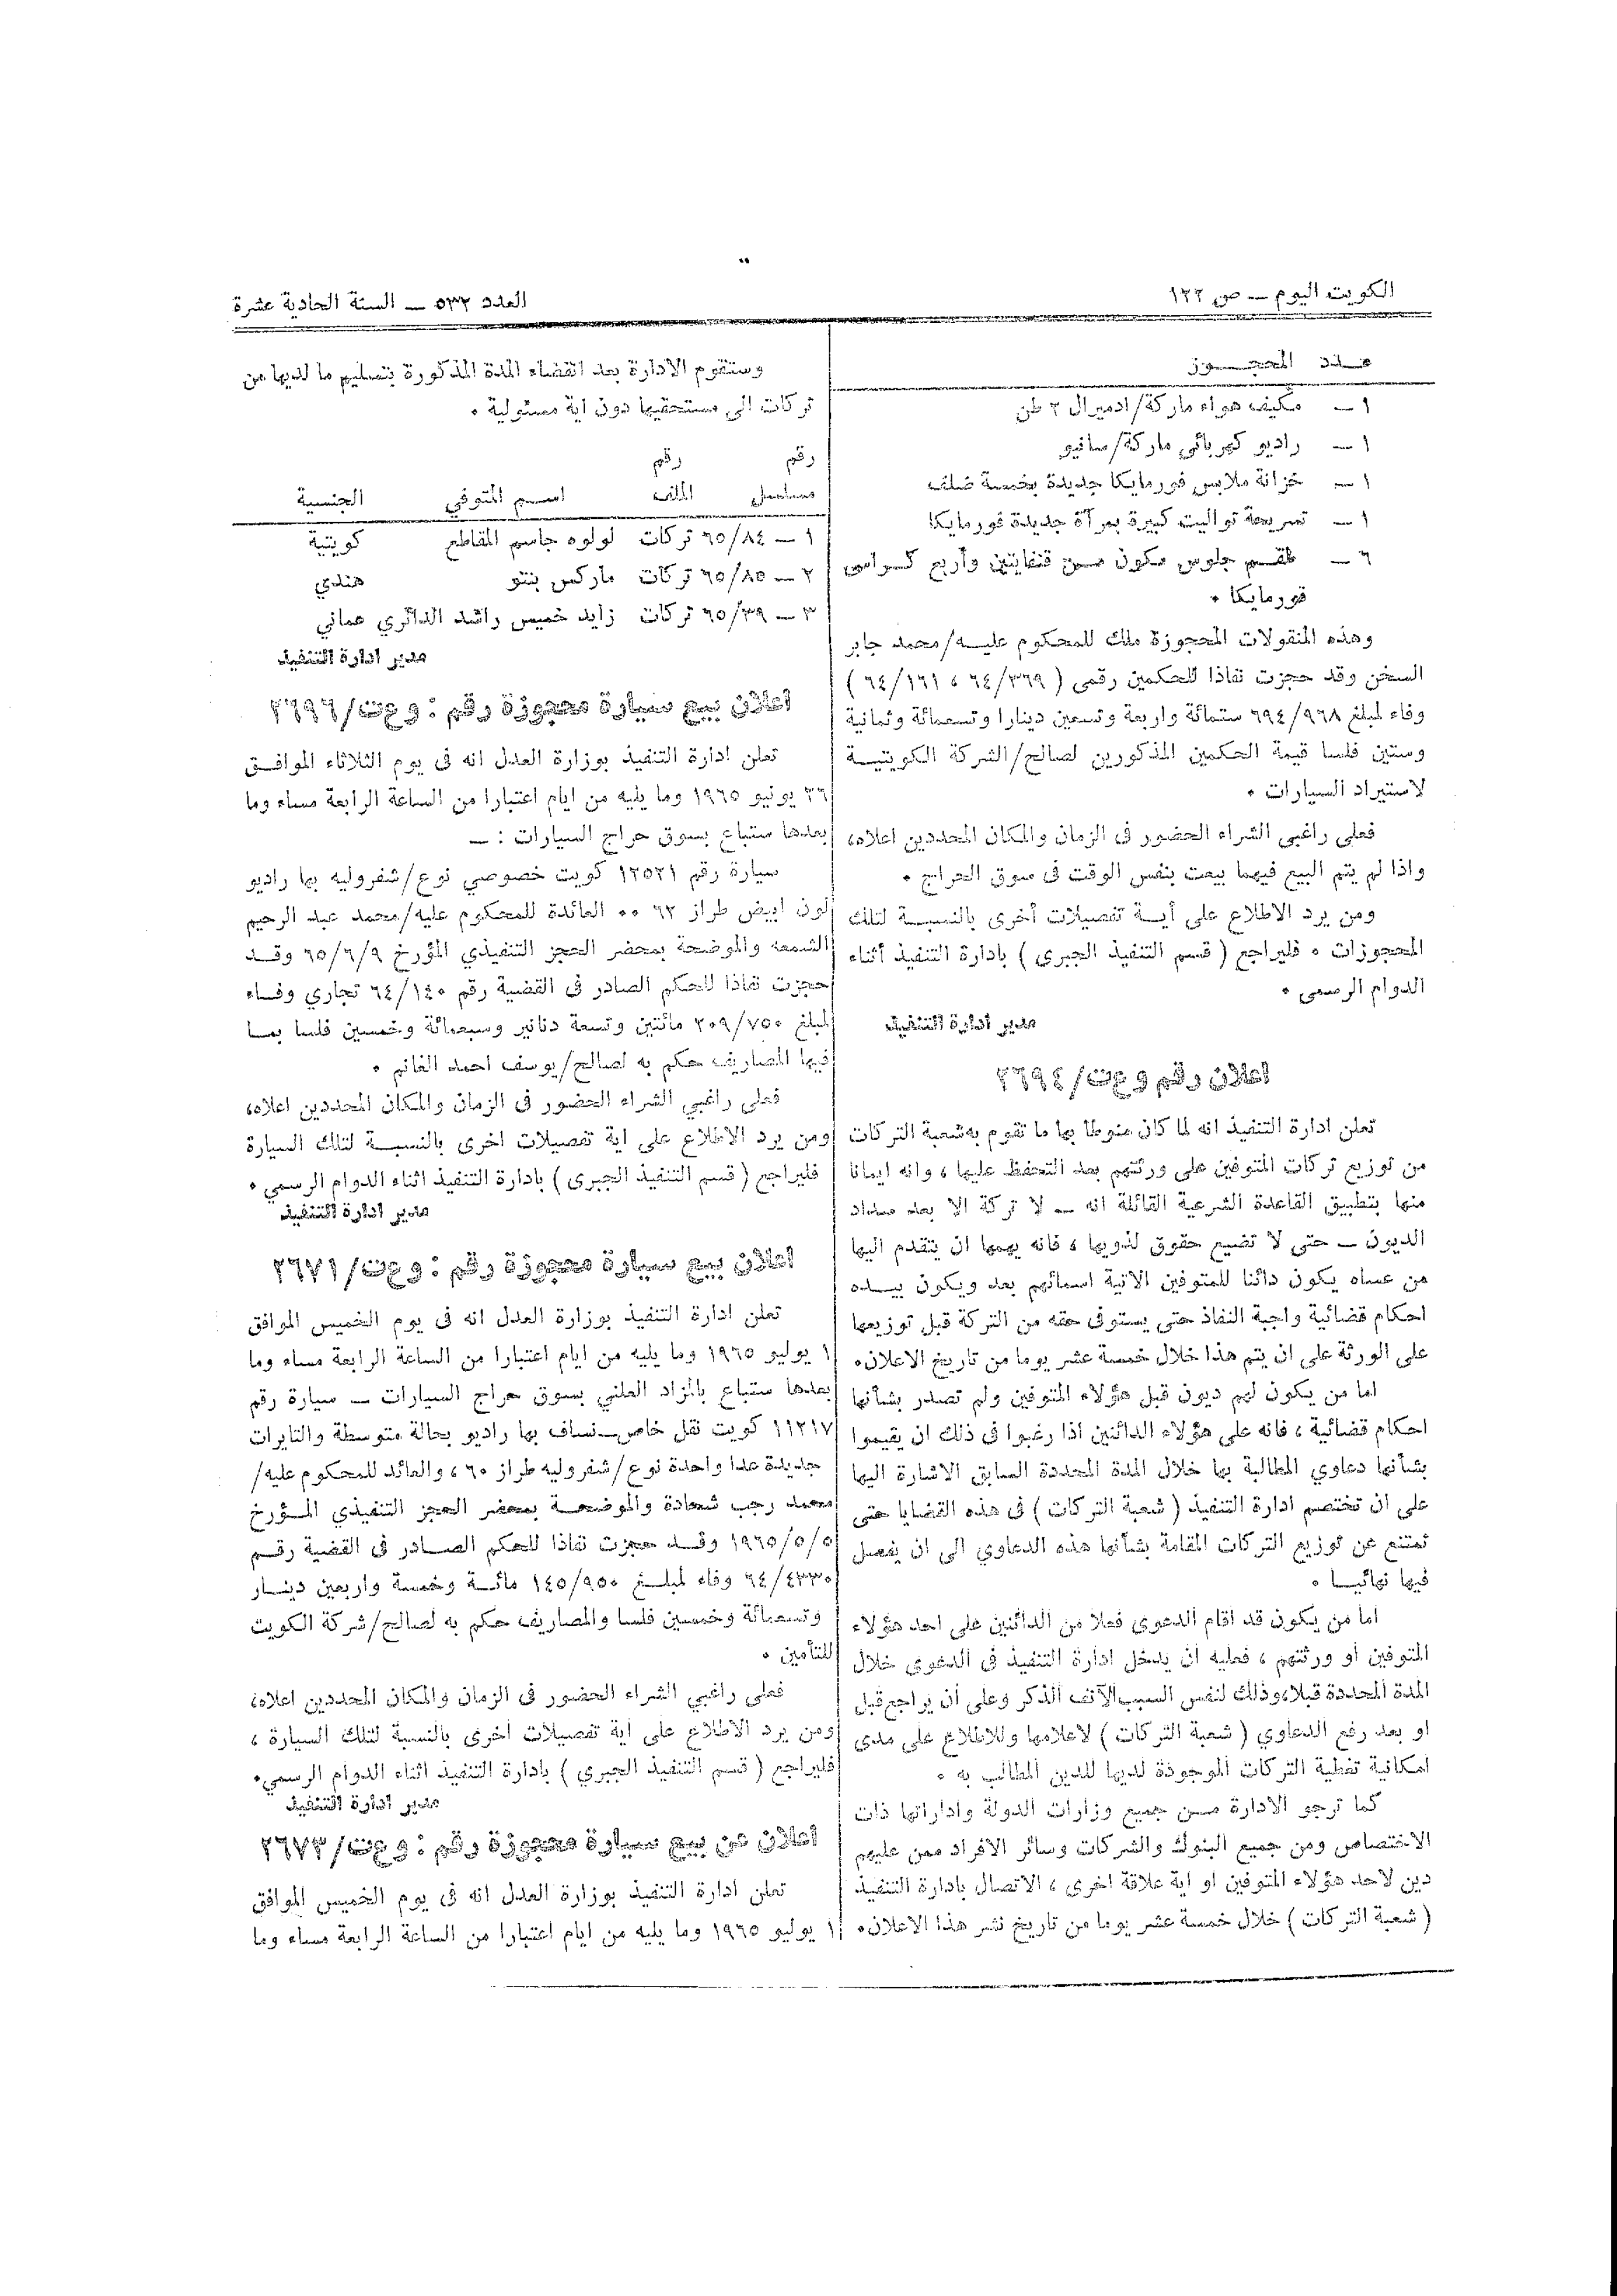 الكويت اليوم — ص ١٢٢
العدد ٥٣٢ — السنة الحادية عشرة
عـدد المحجـــوز
١ — مكيف هواء ماركة/ادميرال ٢ طن
١ — راديو كهربائي ماركة/سانيو
١ — خزانة ملابس فورمايكا جديدة بخمسة ضلف
١ — تسريحة تواليت كبيرة بمرآة جديدة فورمايكا
٦ — طقــم جلوس مكون مــن قنفايتين وأربع كــراسي
فورمايكا .
وهذه المنقولات المحجوزة ملك للمحكوم عليــه/محمد جابر
السخن وقد حجزت نفاذا للحكمين رقمى ( ٦٤/٣٦٩ ، ٦٤/١٦١ )
وفاء لمبلغ ٦٩٤/٩٦٨ ستمائة واربعة وتسعين دينارا وتسعمائة وثمانية
وستين فلسا قيمة الحكمين المذكورين لصالح/الشركة الكويتيــة
لاستيراد السيارات .
فعلى راغبى الشراء الحضور فى الزمان والمكان المحددين اعلاه،
واذا لم يتم البيع فيهما بيعت بنفس الوقت فى سوق الحراج .
ومن يرد الاطلاع على أيــة تفصيلات أخرى بالنسبــة لتلك
المحجوزات . فليراجع ( قسم التنفيذ الجبرى ) بادارة التنفيذ أثناء
الدوام الرسمى .
مدير أدارة التنفيذ
اعلان رقم و ع ت/٢٦٩٤
تعلن ادارة التنفيذ انه لما كان منوطا بها ما تقوم به شعبة التركات
من توزيع تركات المتوفين على ورثتهم بعد التحفظ عليها ، وانه ايمانا
منها بتطبيق القاعدة الشرعية القائلة انه — لا تركة الا بعد سداد
الديون — حتى لا تضيع حقوق لذويها ، فانه يهمها ان يتقدم اليها
من عساه يكون دائنا للمتوفين الاتية اسمائهم بعد ويكون بيــده
احكام قضائية واجبة النفاذ حتى يستوفى حقه من التركة قبل توزيعها
على الورثة على ان يتم هذا خلال خمسة عشر يوما من تاريخ الاعلان.
اما من يكون لهم ديون قبل هؤلاء المتوفين ولم تصدر بشأنها
احكام قضائية ، فانه على هؤلاء الدائنين اذا رغبوا فى ذلك ان يقيموا
بشأنها دعاوي المطالبة بها خلال المدة المحددة السابق الاشارة اليها
على ان تختصم ادارة التنفيذ ( شعبة التركات ) فى هذه القضايا حتى
تمتنع عن توزيع التركات المقامة بشأنها هذه الدعاوي الى ان يفصل
فيها نهائيــا .
اما من يكون قد اقام الدعوى فعلا من الدائنين على احد هؤلاء
المتوفين او ورثتهم ، فعليه ان يدخل ادارة التنفيذ فى الدعوى خلال
المدة المحددة قبلا، وذلك لنفس السبب الآنف الذكر وعلى أن يراجع قبل
او بعد رفع الدعاوي ( شعبة التركات ) لاعلامها وللاطلاع على مدى
امكانية تغطية التركات الموجودة لديها للدين المطالب به .
كما ترجو الادارة مــن جميع وزارات الدولة واداراتها ذات
الاختصاص ومن جميع البنوك والشركات وسائر الافراد ممن عليهم
دين لاحد هؤلاء المتوفين او اية علاقة اخرى ، الاتصال بادارة التنفيذ
( شعبة التركات ) خلال خمسة عشر يوما من تاريخ نشر هذا الاعلان.
وستقوم الادارة بعد انقضاء المدة المذكورة بتسليم ما لديها من
تركات الى مستحقيها دون اية مسئولية .
رقم رقم
مسلسل الملف اســم المتوفي الجنسية
١ — ٦٥/٨٤ تركات لولوه جاسم المقاطع كويتية
٢ — ٦٥/٨٥ تركات ماركس بنتو هندي
٣ — ٦٥/٣٩ تركات زايد خميس راشد الدائري عماني
مدير ادارة التنفيذ
اعلان بيع سيارة محجوزة رقم : و ع ت/٢٦٩٦
تعلن ادارة التنفيذ بوزارة العدل انه فى يوم الثلاثاء الموافــق
٢٦ يونيو ١٩٦٥ وما يليه من ايام اعتبارا من الساعة الرابعة مساء وما
بعدها ستباع بسوق حراج السيارات : —
سيارة رقم ١٢٥٢١ كويت خصوصي نوع/شفروليه بها راديو
لون ابيض طراز ٦٢ .. العائدة للمحكوم عليه/محمد عبد الرحيم
الشمعه والموضحة بمحضر الحجز التنفيذي المؤرخ ٦٥/٦/٩ وقــد
حجزت نفاذا للحكم الصادر فى القضية رقم ٦٤/١٤٠ تجاري وفــاء
لمبلغ ٢٠٩/٧٥٠ مائتين وتسعة دنانير وسبعمائة وخمسين فلسا بمــا
فيها المصاريف حكم به لصالح/يوسف احمد الغانم .
فعلى راغبي الشراء الحضور فى الزمان والمكان المحددين اعلاه،
ومن يرد الاطلاع على اية تفصيلات اخرى بالنسبــة لتلك السيارة
فليراجع ( قسم التنفيذ الجبرى ) بادارة التنفيذ اثناء الدوام الرسمي .
مدير ادارة التنفيذ
اعلان بيع سيارة محجوزة رقم : و ع ت/٢٦٧١
تعلن ادارة التنفيذ بوزارة العدل انه فى يوم الخميس الموافق
١ يوليو ١٩٦٥ وما يليه من ايام اعتبارا من الساعة الرابعة مساء وما
بعدها ستباع بالمزاد العلني بسوق حراج السيارات — سيارة رقم
١١٢١٧ كويت نقل خاص—نساف بها راديو بحالة متوسطة والتايرات
جديدة عدا واحدة نوع/شفروليه طراز ٦٠ ، والعائد للمحكوم عليه/
محمد رجب شحادة والموضحــة بمحضر الحجز التنفيذي المــؤرخ
١٩٦٥/٥/٥ وقــد حجزت نفاذا للحكم الصــادر فى القضية رقــم
٦٤/٤٣٣٠ وفاء لمبلــغ ١٤٥/٩٥٠ مائــة وخمسة واربعين دينــار
وتسعمائة وخمسين فلسا والمصاريف حكم به لصالح/شركة الكويت
للتأمين .
فعلى راغبي الشراء الحضور فى الزمان والمكان المحددين اعلاه،
ومن يرد الاطلاع على اية تفصيلات اخرى بالنسبة لتلك السيارة ،
فليراجع ( قسم التنفيذ الجبري ) بادارة التنفيذ اثناء الدوام الرسمي.
مدير أدارة التنفيذ
اعلان عن بيع سيارة محجوزة رقم : و ع ت/٢٦٧٣
تعلن ادارة التنفيذ بوزارة العدل انه فى يوم الخميس الموافق
١ يوليو ١٩٦٥ وما يليه من ايام اعتبارا من الساعة الرابعة مساء وما